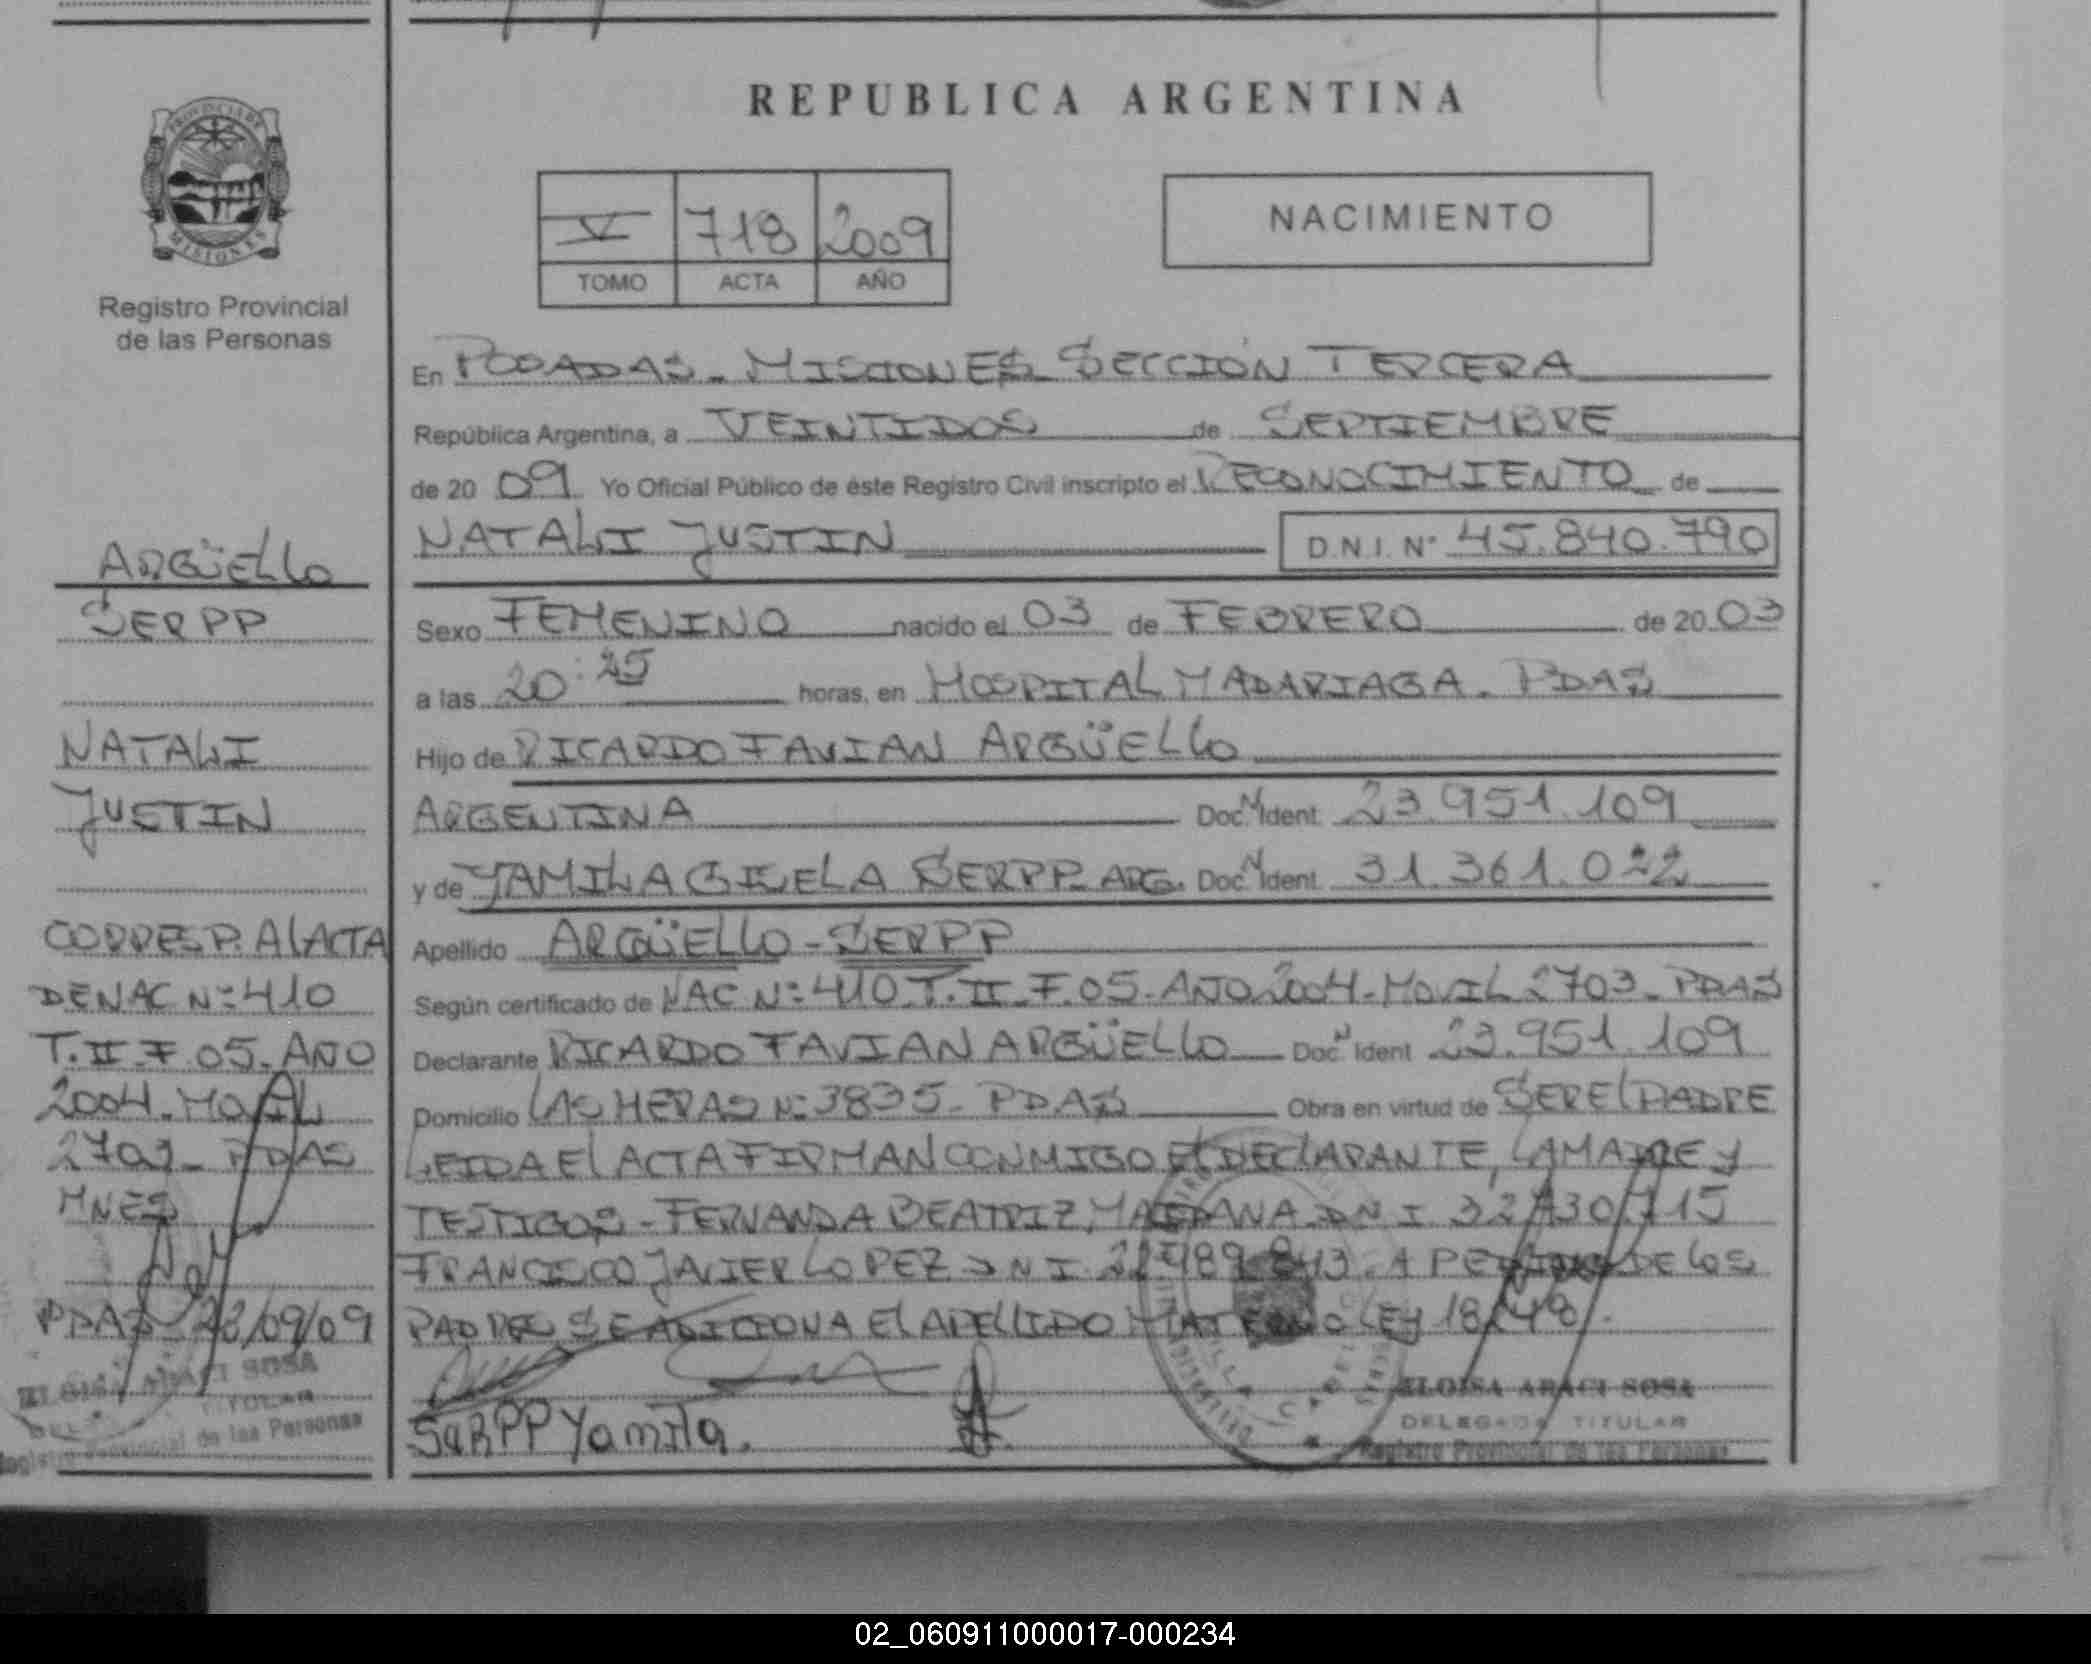 REPUBLICA ARGENTINA
PROVINCIA DE
MISIONES
Registro Provincial
de las Personas
V 718 2009
TOMO ACTA AÑO
NACIMIENTO
En POSADAS - MISIONES SECCIÓN TERCERA
República Argentina, a VEINTIDOS de SEPTIEMBRE
de 20 09 Yo Oficial Público de éste Registro Civil inscripto el RECONOCIMIENTO de
NATALI JUSTIN D.N.I. N° 45.840.790
Sexo FEMENINO nacido el 03 de FEBRERO de 20 03
a las 20:25 horas, en HOSPITAL MADARIAGA. PDAS
Hijo de RICARDO FAVIAN ARGÜELLO
ARGENTINA Doc. N Ident. 23.951.109
y de YAMILA GISELA SERPP ARG. Doc. N Ident. 31.361.022
Apellido ARGÜELLO - SERPP
Según certificado de NAC N:410 T. II F. 05. AÑO 2004. MOVIL 2703 - PDAS
Declarante RICARDO FAVIAN ARGÜELLO Doc. N Ident 23.951.109
Domicilio LAS HERAS N: 3835 - PDAS Obra en virtud de SER EL PADRE
LEIDA EL ACTA FIRMAN CONMIGO EL DECLARANTE, LA MADRE Y
TESTIGOS - FERNANDA BEATRIZ DNI 32 715
FRANCISCO JAVIER LOPEZ DNI A PEDIDO DE LOS
PADRES SE ADICIONA EL APELLIDO MATERNO LEY
SERPP Yamila.
ELOISA ARACI SOSA
DELEGADA TITULAR
Registro Provincial de las Personas
ARGÜELLO
SERPP
NATALI
JUSTIN
CORRESP. AL ACTA
DE NAC N:410
T. II F. 05. AÑO
2004. MOVIL
2703 - PDAS
MNES
PDAS /09/09
ELOISA ARACI SOSA
TITULAR
Registro Provincial de las Personas
02_060911000017-000234